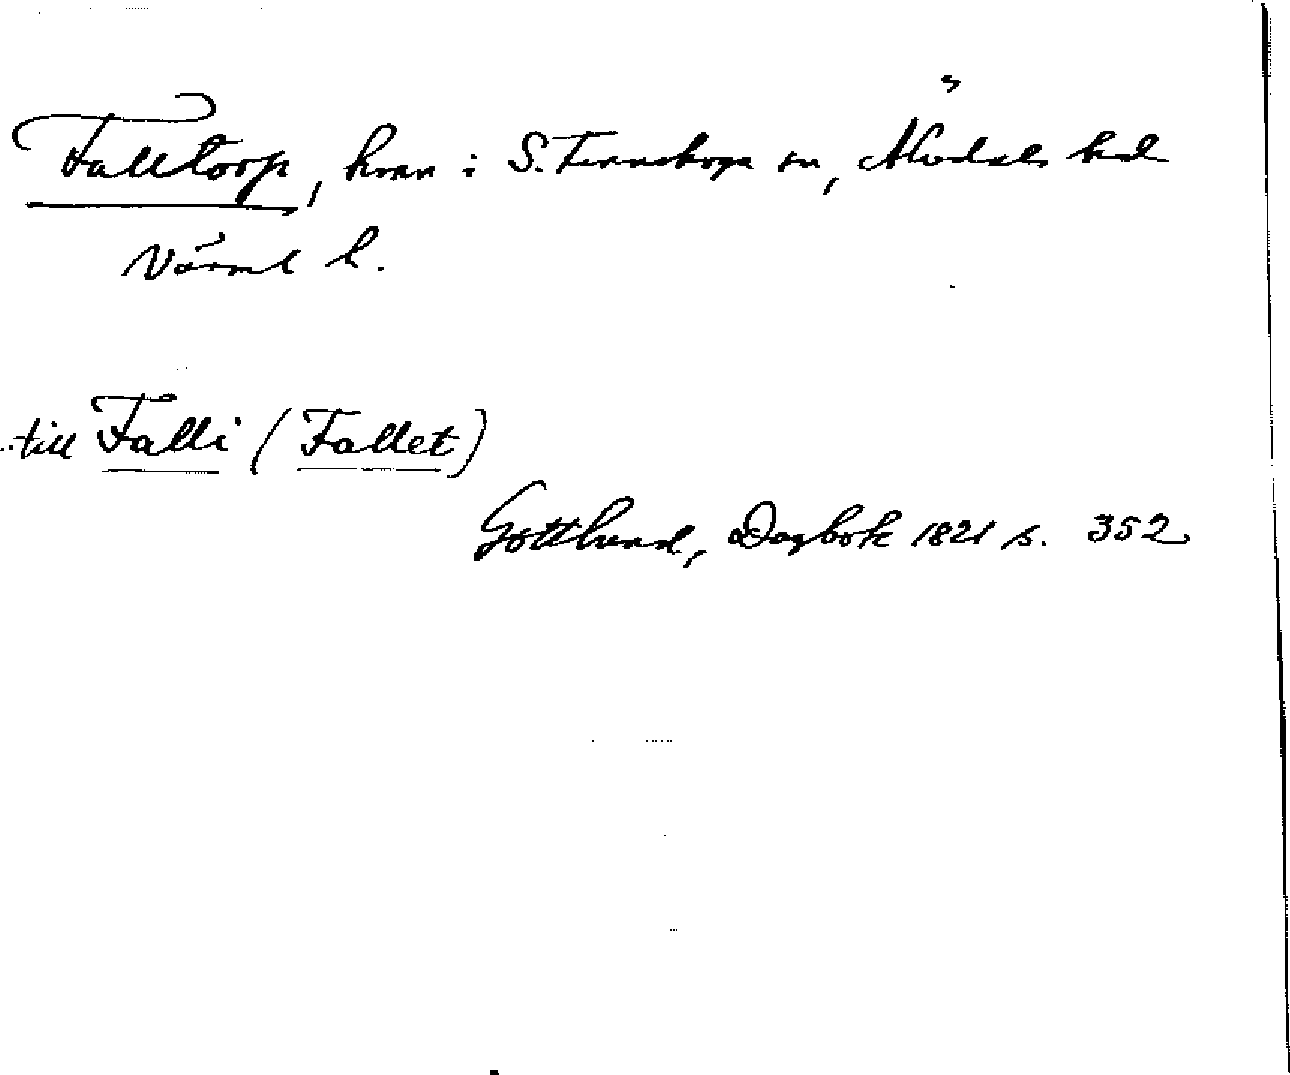 Falltorp, kvarn i S. Finnskoga sn, Älvdals hd
Värml l.
till Falli (Fallet)
Gottlund, Dagbok 1821 s. 352